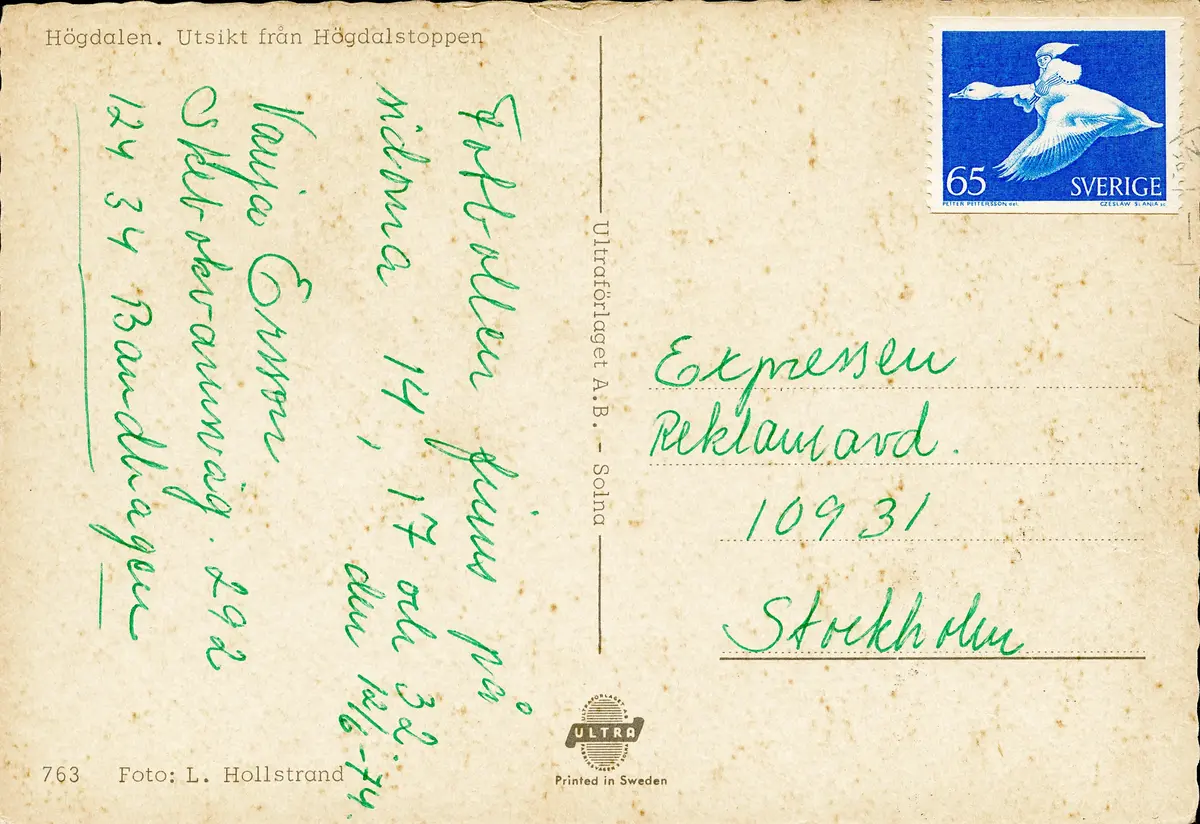 Högdalen. Utsikt från Högdalstoppen
Fotbollen finns på
sidorna 14, 17 och 32.
den 12/6-74.
Vanja Ersson
Skebokvarnsväg. 292
124 34 Bandhagen
763 Foto: L. Hollstrand
Ultraförlaget A.B. - Solna
ULTRAFÖRLAGET AB
ULTRA
Printed in Sweden
65 SVERIGE
PETTER PETTERSSON del. CZESLAW SLANIA sc.
Expressen
Reklamavd.
10931
Stockholm